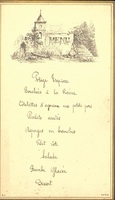 MENU
Potage
Bouchées à la Reine
Côtelettes d'agneau aux petits pois
Poulets rôtis
Asperges en branches
Salade
Bombe Glacée
Dessert